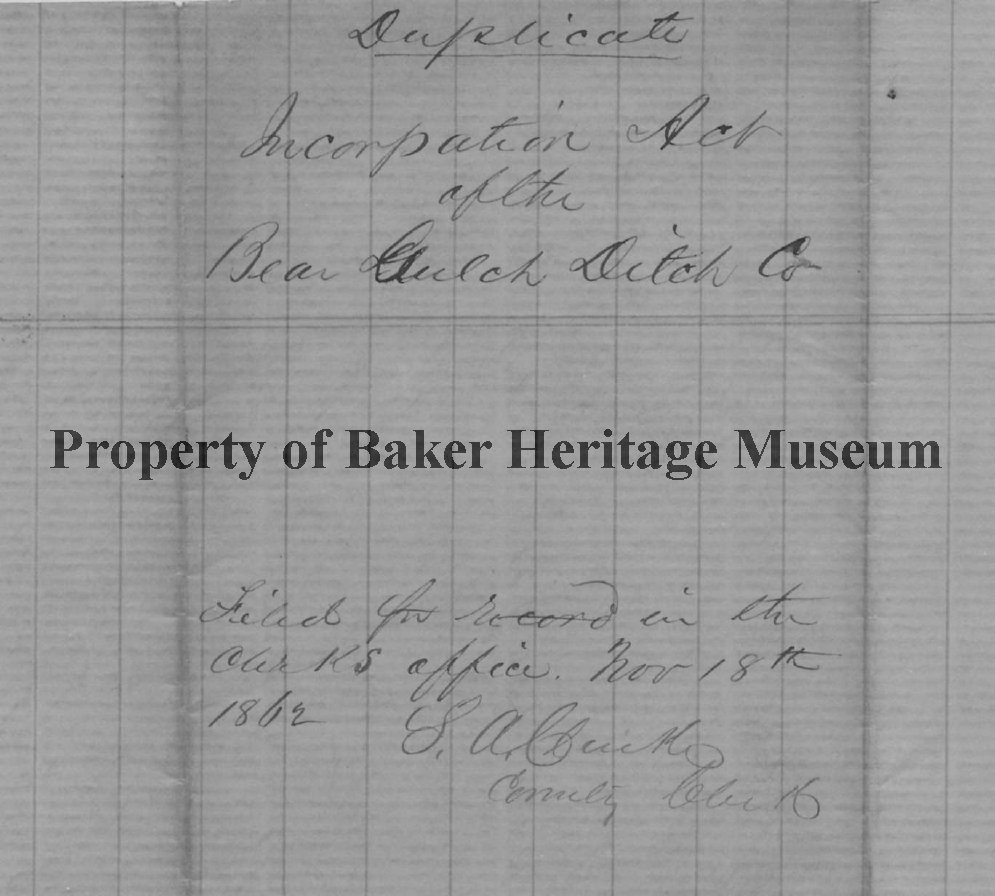 Duplicate
Incorpation Act
of the
Bear Gulch Ditch Co
Property of Baker Heritage Museum
Filed for record in the
Clerks office. Nov 18th
1862 S. A. Clarke
County Clerk